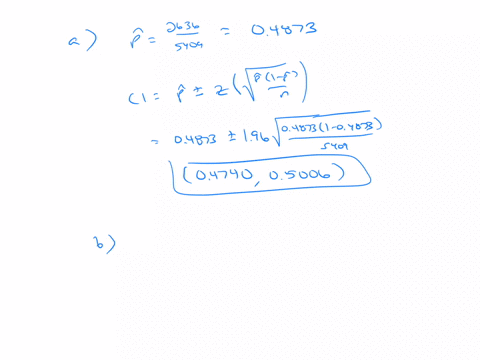 a) p̂ = 2636/5409 = 0.4873
CI = p̂ ± z(√(p̂(1-p̂)/n))
= 0.4873 ± 1.96 √(0.4873(1-0.4873)/5409)
(0.4740, 0.5006)
b)